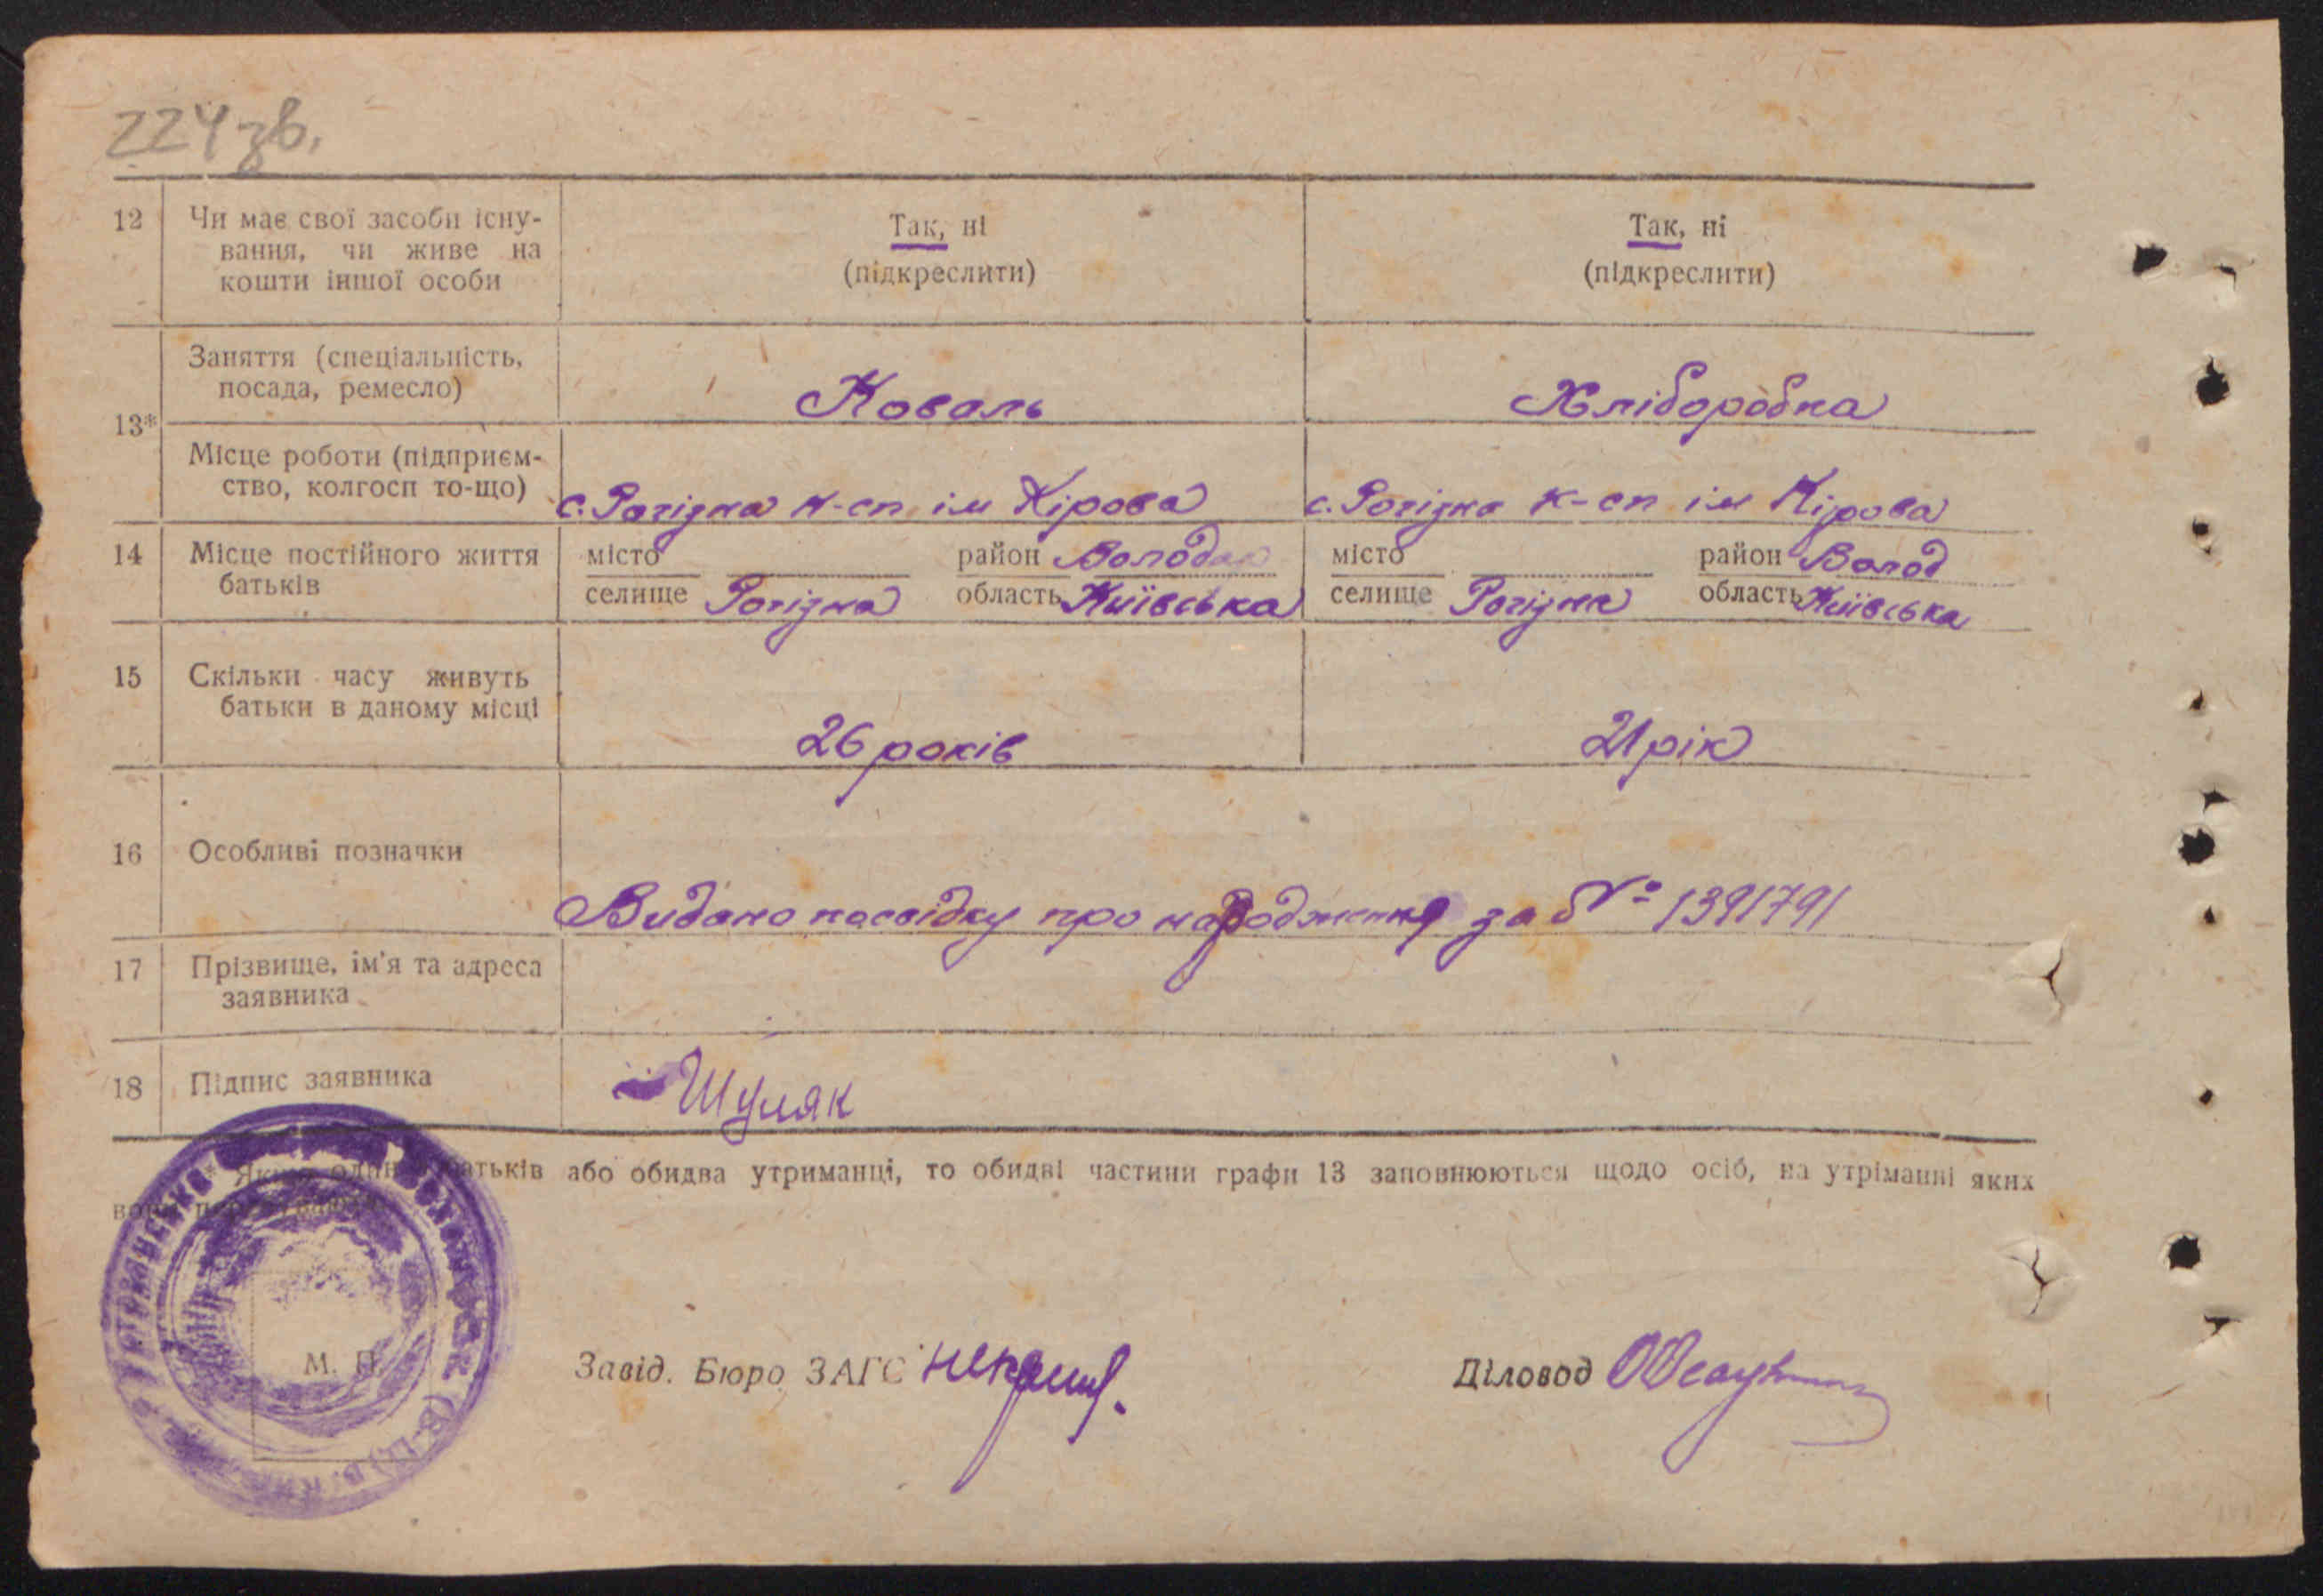 224 зв.
12 Чи має свої засоби існу-
вання, чи живе на
кошти іншої особи
Так, ні
(підкреслити)
Так, ні
(підкреслити)
13*
Заняття (спеціальність,
посада, ремесло)
Коваль
Хліборобка
Місце роботи (підприєм-
ство, колгосп то-що)
с. Рогізна к-сп ім Кірова
с. Рогізна к-сп ім Кірова
14 Місце постійного життя
батьків
місто
селище Рогізна
район Володар
область Київська
місто
селище Рогізна
район Волод
область Київська
15 Скільки часу живуть
батьки в даному місці
26 років
21 рік
16 Особливі позначки
Видано посвідку про народження за № 1391791
17 Прізвище, ім'я та адреса
заявника
18 Підпис заявника
Шуляк
* Якщо один з батьків або обидва утриманці, то обидві частини графи 13 заповнюються щодо осіб, на утріманні яких
вони перебувають.
М. П.
Завід. Бюро ЗАГС
Діловод